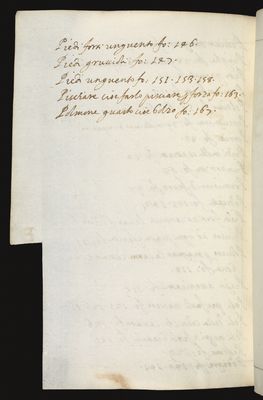 Piedi forti unguento fo: 146.
Piedi gravidi fo: 147.
Piedi unguento fo. 151. 153. 158.
Pisciare cioè farlo pisciare p forza fo: 163.
Polmone guasto cioè bolzo fo: 167.